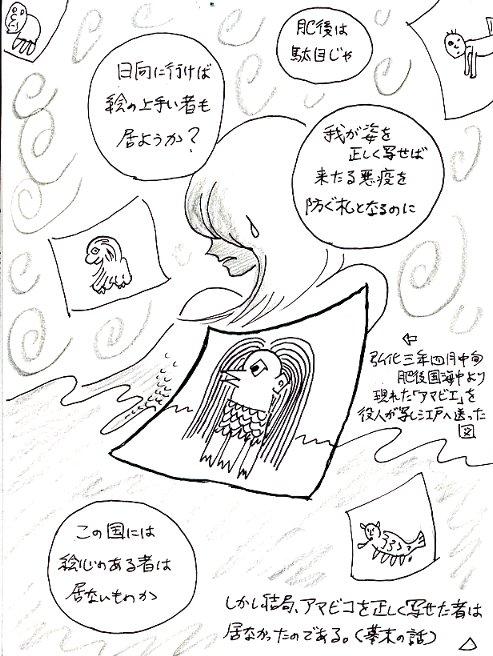 肥後は
駄目じゃ
日向に行けば
絵の上手い者も
居ようか?
我が姿を
正しく写せば
来たる悪疫を
防ぐ札となるのに
⇦
弘化三年四月中旬
肥後国海中より
現れた「アマビエ」を
役人が写し江戸へ送った
図
この国には
絵心のある者は
居ないものか
しかし結局、アマビコを正しく写せた者は
居なかったのである。(幕末の話)